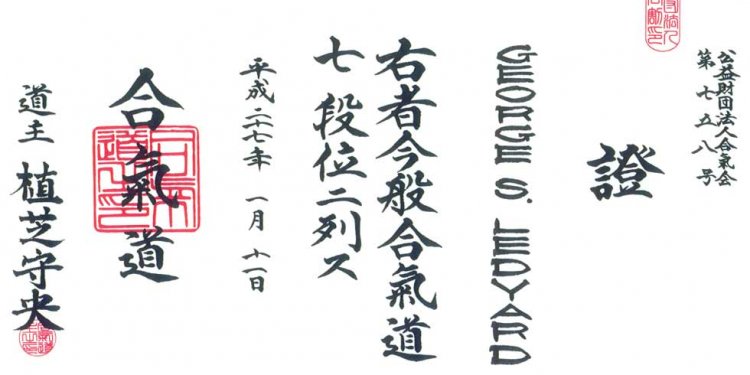 公益財団法人合氣会
第七五八号
證
GEORGE S. LEDYARD
右者今般合氣道
七段位ニ列ス
平成二十七年 一月 十一日
合氣道
道主 植芝守央